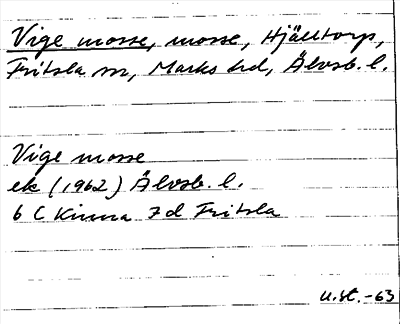 Vige mosse, mosse, Hjälltorp,
Fritsla sn, Marks hd, Älvsb. l.
Vige mosse
ek (1962) Älvsb. l.
6 C Kinna 7d Fritsla
U.St. -63